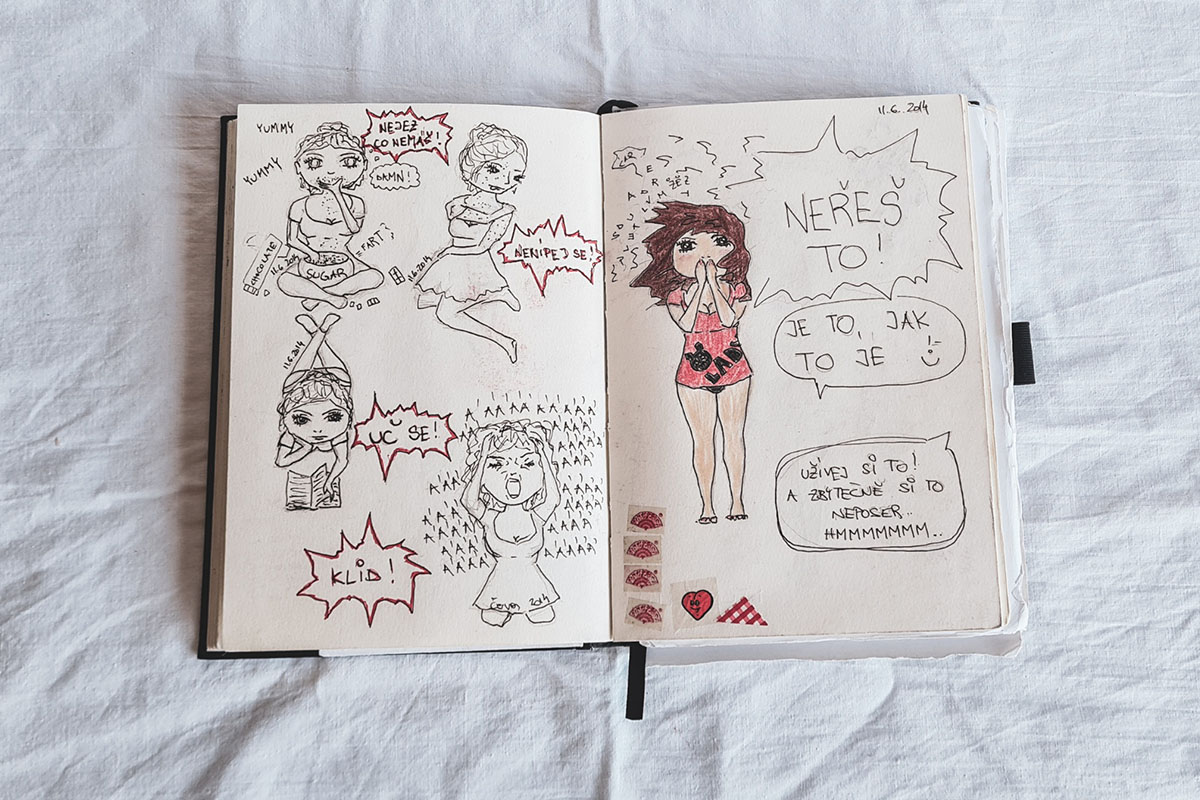 YUMMY
YUMMY
NEJEZ
CO NEMÁŠ!
CHOCOLATE
11.6.2014
SUGAR
FART?
11.6.2014
NENIPEJ SE!
11.6.2014
UČ SE!
ÁÁÁÁÁÁÁÁ
KLID!
ČERVEN 2014
11.6.2014
NEŘEŠ
TO!
JE TO, JAK
TO JE
LADY
UŽÍVEJ SI TO!
A ZBYTEČNĚ SI TO
NEPOSER..
HMMMMMMM..